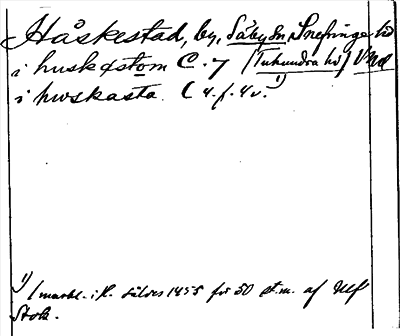 Håskestad, by, Säby sn, Snefringe hd
i huskastom C. 7 (Tuhundra hd) Vml
i huskasta. C 4. f. 4 v. 1)
1) 1 markl. i H. såldes 1455 för 50 st.m. af Ulf
Stok.